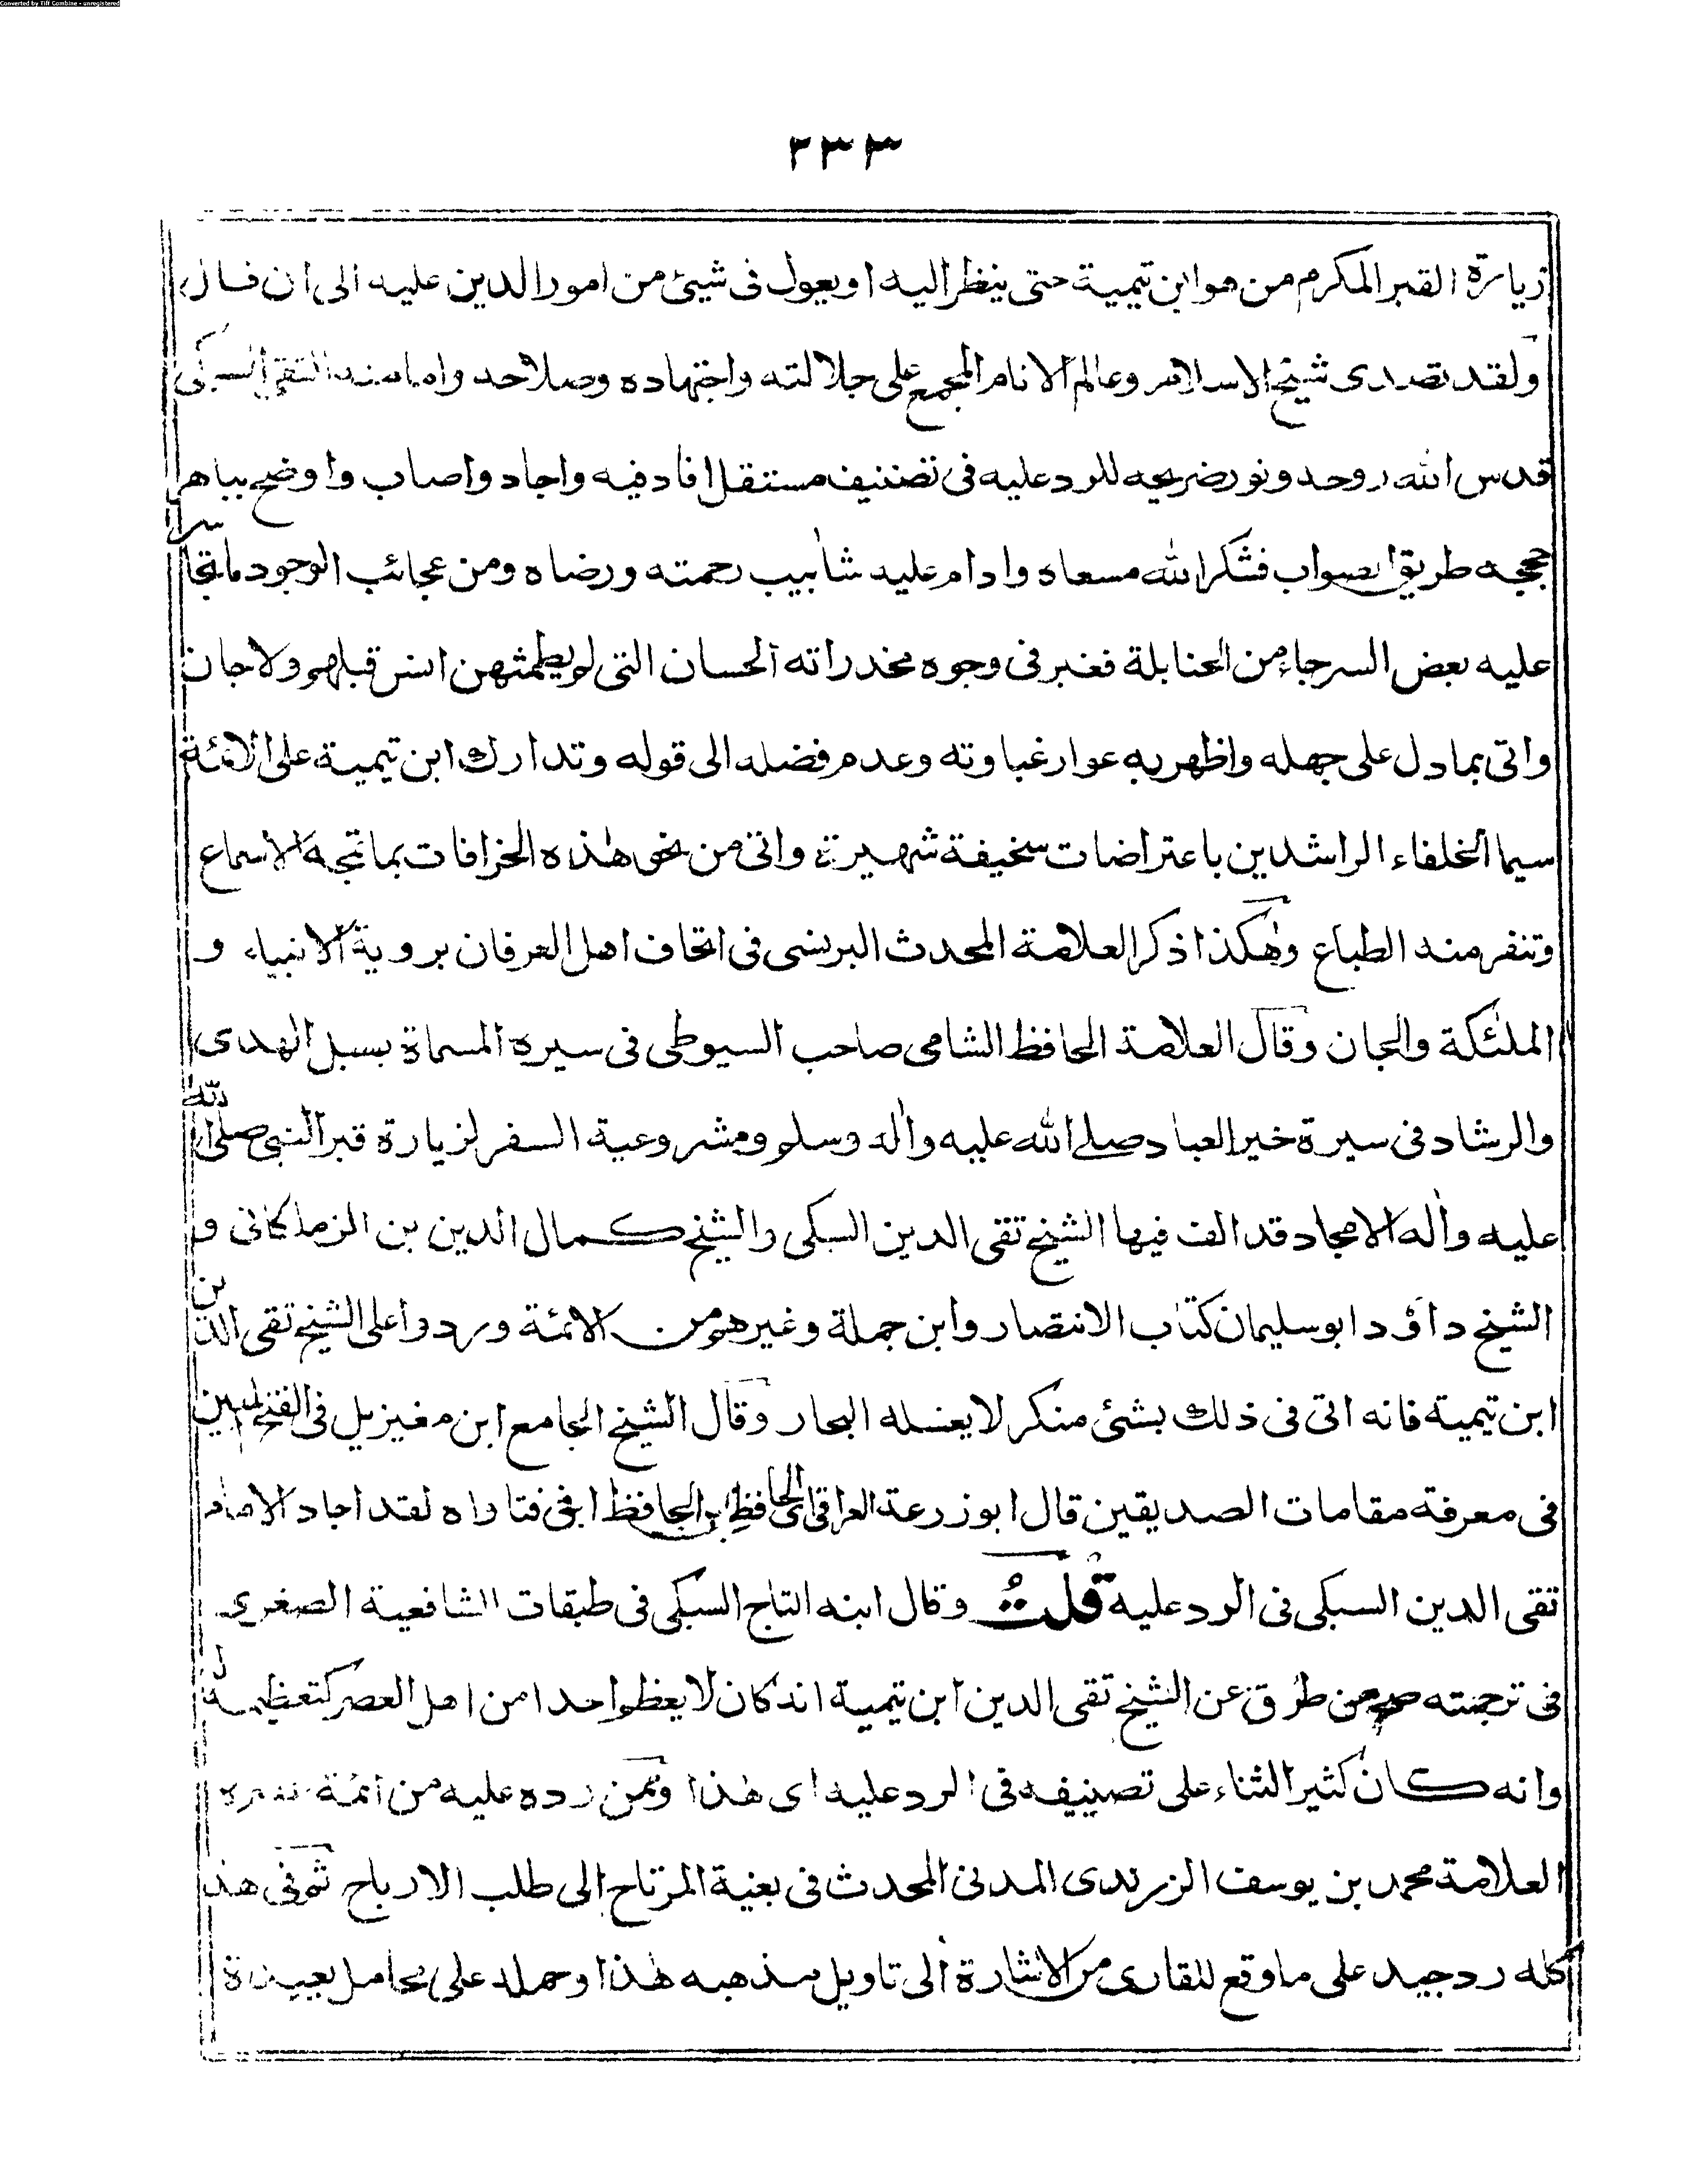 Converted by Tiff Combine - unregistered
٢٣٣
زيارة القبر المكرم من هو ابن تيمية حتى ينظر اليه او يعول فى شيئ من امور الدين عليه الى ان قال
ولقد تصدى شيخ الاسلام وعالم الانام المجمع على جلالته واجتهاده وصلاحه وامامته التقى السبكى
قدس الله روحه ونور ضريحه للرد عليه فى تصنيف مستقل افاد فيه واجاد واصاب واوضح بباهر
حججه طريق الصواب فشكر الله مسعاه وادام عليه شآبيب رحمته ورضاه ومن عجائب الوجود ما تجاسر
عليه بعض السرجاء من الحنابلة فغبر فى وجوه مخدراته الحسان التى لم يطمثهن انس قبلهم ولا جان
واتى بما دل على جهله واظهر به عوار غباوته وعدم فضله الى قوله وتدارك ابن تيمية على الائمة
سيما الخلفاء الراشدين باعتراضات سخيفة شهيرة واتى من نحو هذه الخرافات بما تمجه الاسماع
وتنفر منه الطباع وهكذا ذكر العلامة المحدث البرنسى فى اتحاف اهل العرفان بروية الانبياء و
الملئكة والجان وقال العلامة الحافظ الشامى صاحب السيوطى فى سيرة المسماة بسبل الهدى
والرشاد فى سيرة خير العباد صلى الله عليه واله وسلم ومشروعية السفر لزيارة قبر النبى صلى الله
عليه واله الامجاد قد الف فيها الشيخ تقى الدين السبكى والشيخ كمال الدين بن الزملكانى و
الشيخ داؤد ابو سليمان كتاب الانتصار وابن جملة وغيرهم من الائمة وردوا على الشيخ تقى الدين
ابن تيمية فانه اتى فى ذلك بشئ منكر لا يغسله البحار وقال الشيخ الجامع ابن مغيزيل فى الفتح المبين
فى معرفة مقامات الصديقين قال ابو زرعة العراقى الحافظ ابن الحافظ فى فتاواه لقد اجاد الامام
تقى الدين السبكى فى الرد عليه قلت وقال ابنه التاج السبكى فى طبقات الشافعية الصغرى
فى ترجمته صح من طرق عن الشيخ تقى الدين ابن تيمية انه كان لا يعظم احدا من اهل العصر كتعظيمه له
وانه كان كثير الثناء على تصنيفه فى الرد عليه اى هذا وممن رده عليه من ائمة عصره
العلامة محمد بن يوسف الزرندى المدنى المحدث فى بغية المرتاح الى طلب الارباح ثم فى هذا
كله رد جيد على ما وقع للقارى من الاشارة الى تاويل مذهبه هذا وحمله على محامل بعيدة